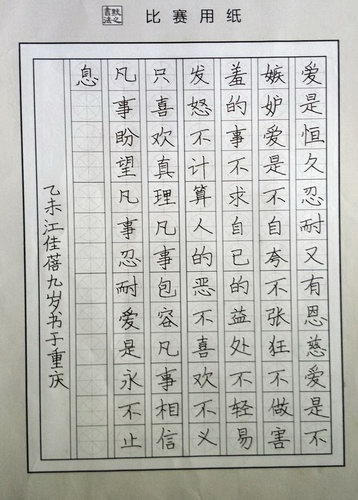 默之書法
比赛用纸
爱是恒久忍耐又有恩慈爱是不
嫉妒爱是不自夸不张狂不做害
羞的事不求自己的益处不轻易
发怒不计算人的恶不喜欢不义
只喜欢真理凡事包容凡事相信
凡事盼望凡事忍耐爱是永不止
息
乙未江佳蓓九岁书于重庆